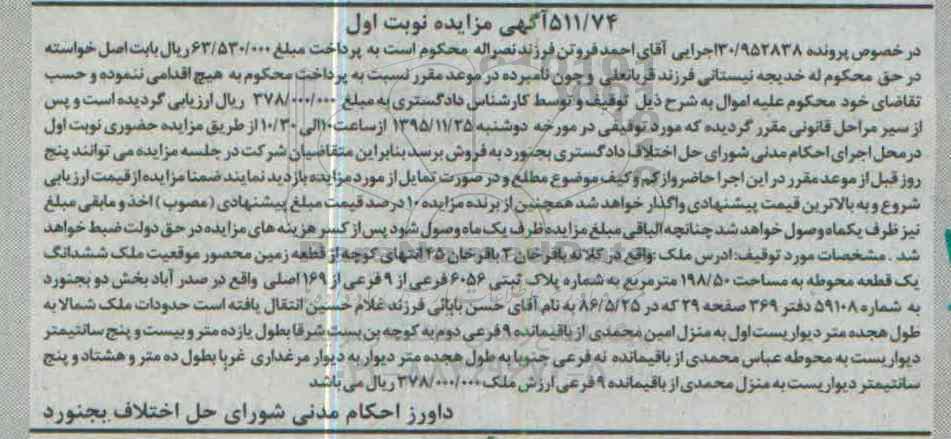 ۵۱۱/۷۴آگهی مزایده نوبت اول
در خصوص پرونده ۳۰/۹۵۲۸۳۸اجرایی آقای احمد فروتن فرزند نصراله محکوم است به پرداخت مبلغ ۶۳/۵۳۰/۰۰۰ریال بابت اصل خواسته
در حق محکوم له خدیجه نیستانی فرزند قربانعلی و چون نامبرده در موعد مقرر نسبت به پرداخت محکوم به هیچ اقدامی ننموده و حسب
تقاضای خود محکوم علیه اموال به شرح ذیل توقیف و توسط کارشناس دادگستری به مبلغ ۳۷۸/۰۰۰/۰۰۰ ریال ارزیابی گردیده است و پس
از سیر مراحل قانونی مقرر گردیده که مورد توقیفی در مورخه دوشنبه ۱۳۹۵/۱۱/۲۵ از ساعت۱۰الی ۱۰/۳۰از طریق مزایده حضوری نوبت اول
در محل اجرای احکام مدنی شورای حل اختلاف دادگستری بجنورد به فروش برسد بنابراین متقاضیان شرکت در جلسه مزایده می توانند پنج
روز قبل از موعد مقرر در این اجرا حاضر و از کم و کیف موضوع مطلع و در صورت تمایل از مورد مزایده بازدید نمایند ضمنا مزایده از قیمت ارزیابی
شروع و به بالاترین قیمت پیشنهادی واگذار خواهد شد همچنین از برنده مزایده ۱۰ درصد قیمت مبلغ پیشنهادی (مصوب) اخذ و مابقی مبلغ
نیز ظرف یکماه وصول خواهد شد چنانچه الباقی مبلغ مزایده ظرف یک ماه وصول شود پس از کسر هزینه های مزایده در حق دولت ضبط خواهد
شد . مشخصات مورد توقیف: ادرس ملک :واقع در کلاته باقرخان ۲ باقرخان ۲۵ انتهای کوچه از قطعه زمین محصور موقعیت ملک ششدانگ
یک قطعه محوطه به مساحت ۱۹۸/۵۰ مترمربع به شماره پلاک ثبتی ۶۰۵۶ فرعی از ۹ فرعی از ۱۶۹ اصلی واقع در صدر آباد بخش دو بجنورد
به شماره ۵۹۱۰۸ دفتر ۳۶۹ صفحه ۲۹ که در ۸۶/۵/۲۵ به نام آقای حسن بابائی فرزند غلام حسین انتقال یافته است حدودات ملک شمالا به
طول هجده متر دیواریست اول به منزل امین محمدی از باقیمانده ۹ فرعی دوم به کوچه بن بست شرقا بطول یازده متر و بیست و پنج سانتیمتر
دیواریست به محوطه عباس محمدی از باقیمانده نه فرعی جنوبا به طول هجده متر دیوار به دیوار مرغداری غربا بطول ده متر و هشتاد و پنج
سانتیمتر دیواریست به منزل محمدی از باقیمانده ۹ فرعی ارزش ملک ۳۷۸/۰۰۰/۰۰۰ ریال می باشد
داورز احکام مدنی شورای حل اختلاف بجنورد